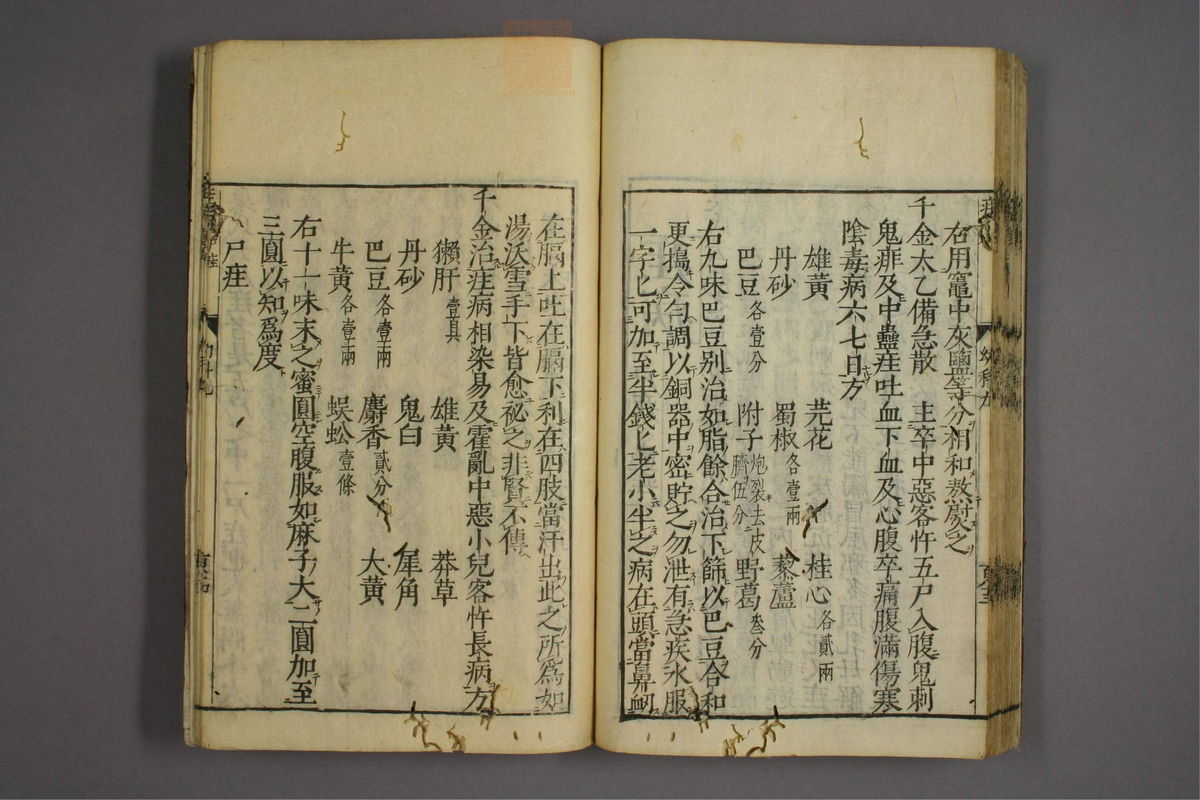 右用竈中灰鹽等分相和熬熨之
千金太乙備急散　主卒中惡客忤五尸入腹鬼刺
鬼痱及中蠱疰吐血下血及心腹卒痛腹滿傷寒
陰毒病六七日方
雄黄　芫花　桂心各貳兩
丹砂　蜀椒各壹兩　藜蘆
巴豆各壹分　附子炮裂去皮臍伍分　野葛叁分
右九味巴豆别治如脂餘合治下篩以巴豆合和
更搗令勻調以銅器中密貯之勿泄有急疾水服
一字匕可加至半錢匕老小半之病在頭當鼻衂
在膈上吐在膈下利在四肢當汗出此之所爲如
湯沃雪手下皆愈祕之非賢不傳
千金治疰病相染易及霍亂中惡小兒客忤長病方
獺肝壹具　雄黄　莽草
丹砂　鬼臼　犀角
巴豆各壹兩　麝香貳分　大黄
牛黄各壹兩　蜈蚣壹條
右十一味末之蜜圓空腹服如麻子大二圓加至
三圓以知爲度
尸疰